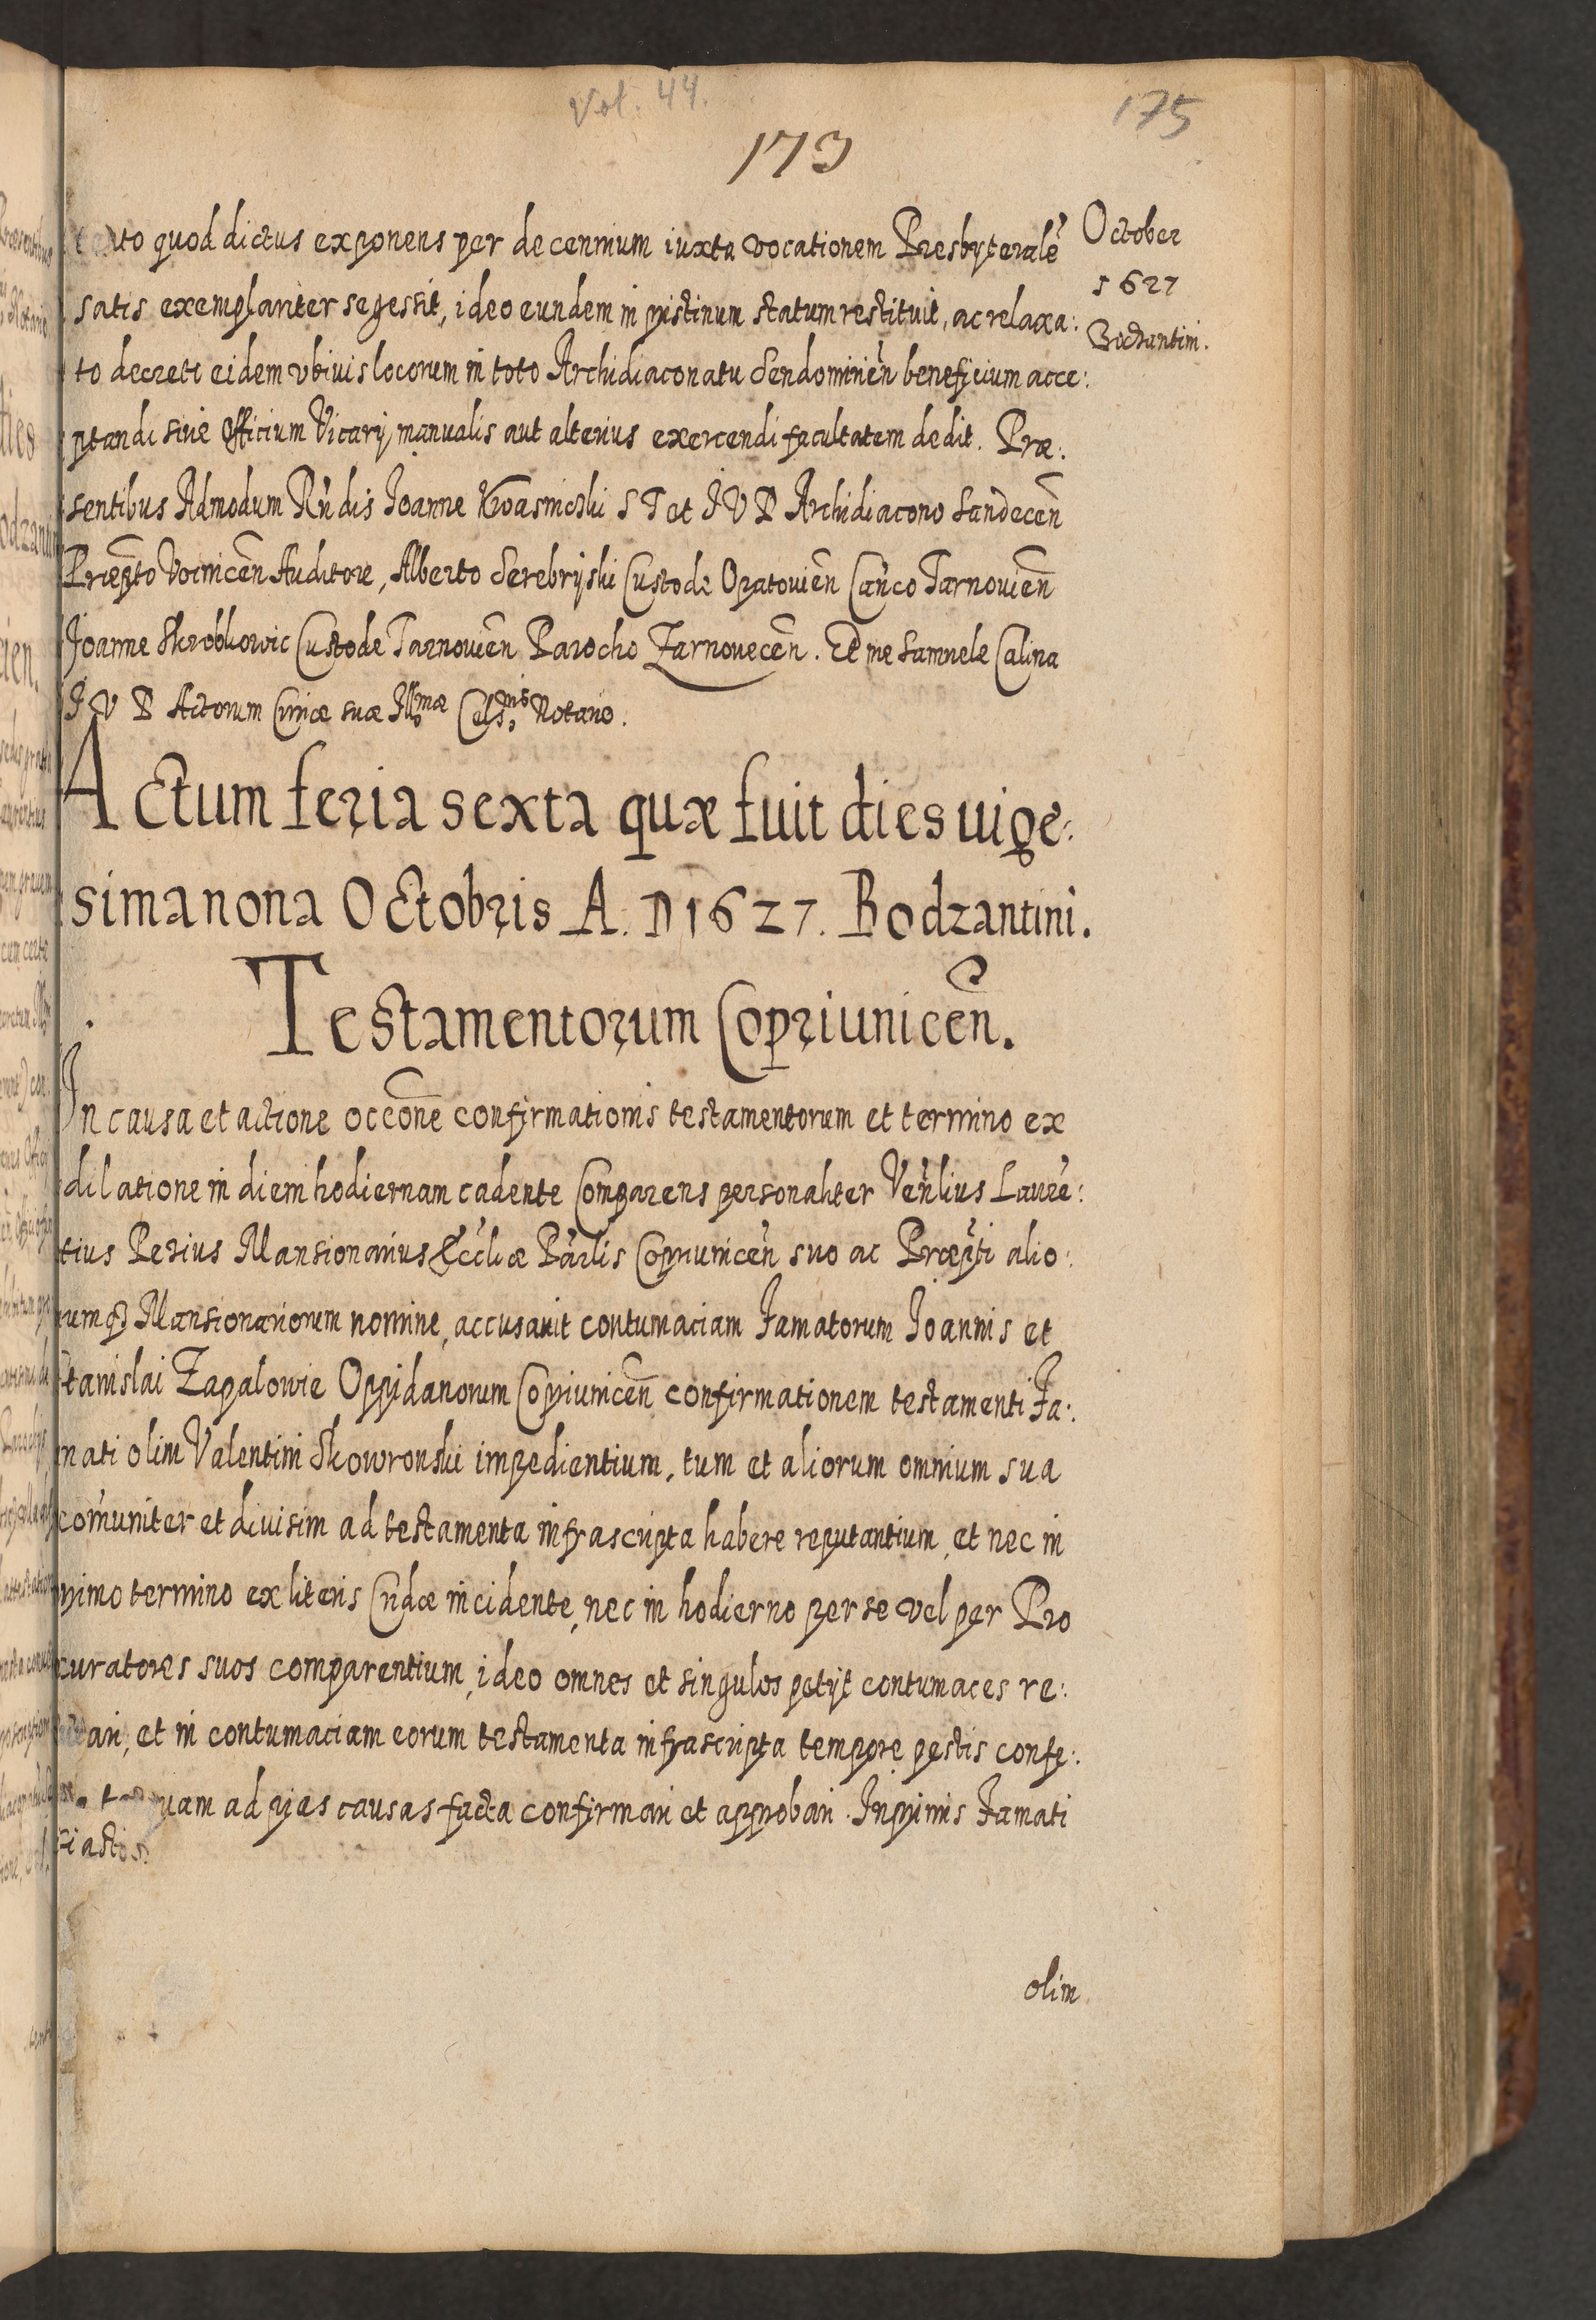 Vol. 44.
175
173
October
1627
Bodzantini.
quod dictus exponens per decennium iuxta vocationem Presbyteralē
satis exemplariter se gessit, ideo eundem in pristinum statum restituit, ac relaxa:
to decreto eidem vbiuis locorum in toto Archidiaconatu Sendomirien̄ beneficium acce:
ptandi siue Officium Vicarij manualis aut alterius exercendi facultatem dedit. Præ:
sentibus Admodum Rn̄dis Joanne S T et J V D Archidiacono Sandecen̄
Præpto Voinicen̄ Auditore, Alberto Serebryski Custode Opatouien̄ Can̄co Tarnouien̄
Joanne Skrobkowic Custode Tarnouien̄ Parocho Zarnouecen̄. Et me Samuele Calina
J V D Actorum Curiæ suæ Ill:mæ Cels:nis Notario.
Actum feria sexta quæ fuit dies uige:
sima nona Octobris A. D 1627. Bodzantini.
Testamentorum Copriunicen̄.
In causa et actione occōne confirmationis testamentorum et termino ex
dilatione in diem hodiernam cadente Comparens personaliter Ven̄lius Laurē:
tius Perius Mansionarius Eccliæ Parlis Copriunicen̄ suo ac Præpti alio:
rumq3 Mansionariorum nomine, accusauit contumaciam Famatorum Joannis et
Stanislai Zapalowie Oppidanorum Copriunicen̄ confirmationem testamenti Fa:
mati olim Valentini Skowronski impedientium, tum et aliorum omnium sua
com̄uniter et diuisim ad testamenta infrascripta habere reputantium, et nec in
primo termino ex literis Cn̄dæ incidente, nec in hodierno per se vel per Pro
curatores suos comparentium, ideo omnes et singulos petijt contumaces re:
et in contumaciam eorum testamenta infrascripta tempore pestis confe:
ad pias causas facta confirmari et approbari. Inprimis Famati
olim